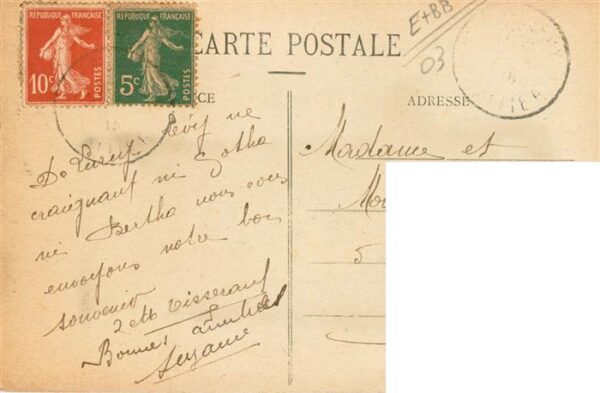 RÉPUBLIQUE FRANÇAISE
10c POSTES
RÉPUBLIQUE FRANÇAISE
5c POSTES
CARTE POSTALE
E+BB
03
CE
ADRESSE
ALLIER
De Lurcy Lévis ne
craignant ni Gotha
ni Bertha nous vous
envoyons notre bon
souvenir
Tisserand
Bonnes amitiés
Suzanne
Madame et
Mo
5